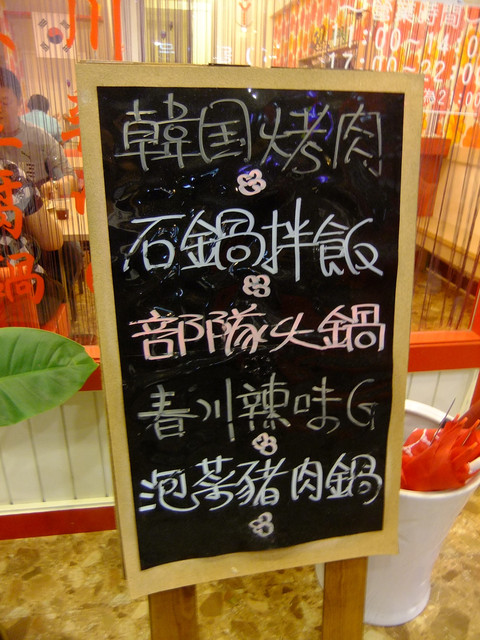 韓国烤肉
石鍋拌飯
部隊火鍋
春川辣味G
泡菜豬肉鍋